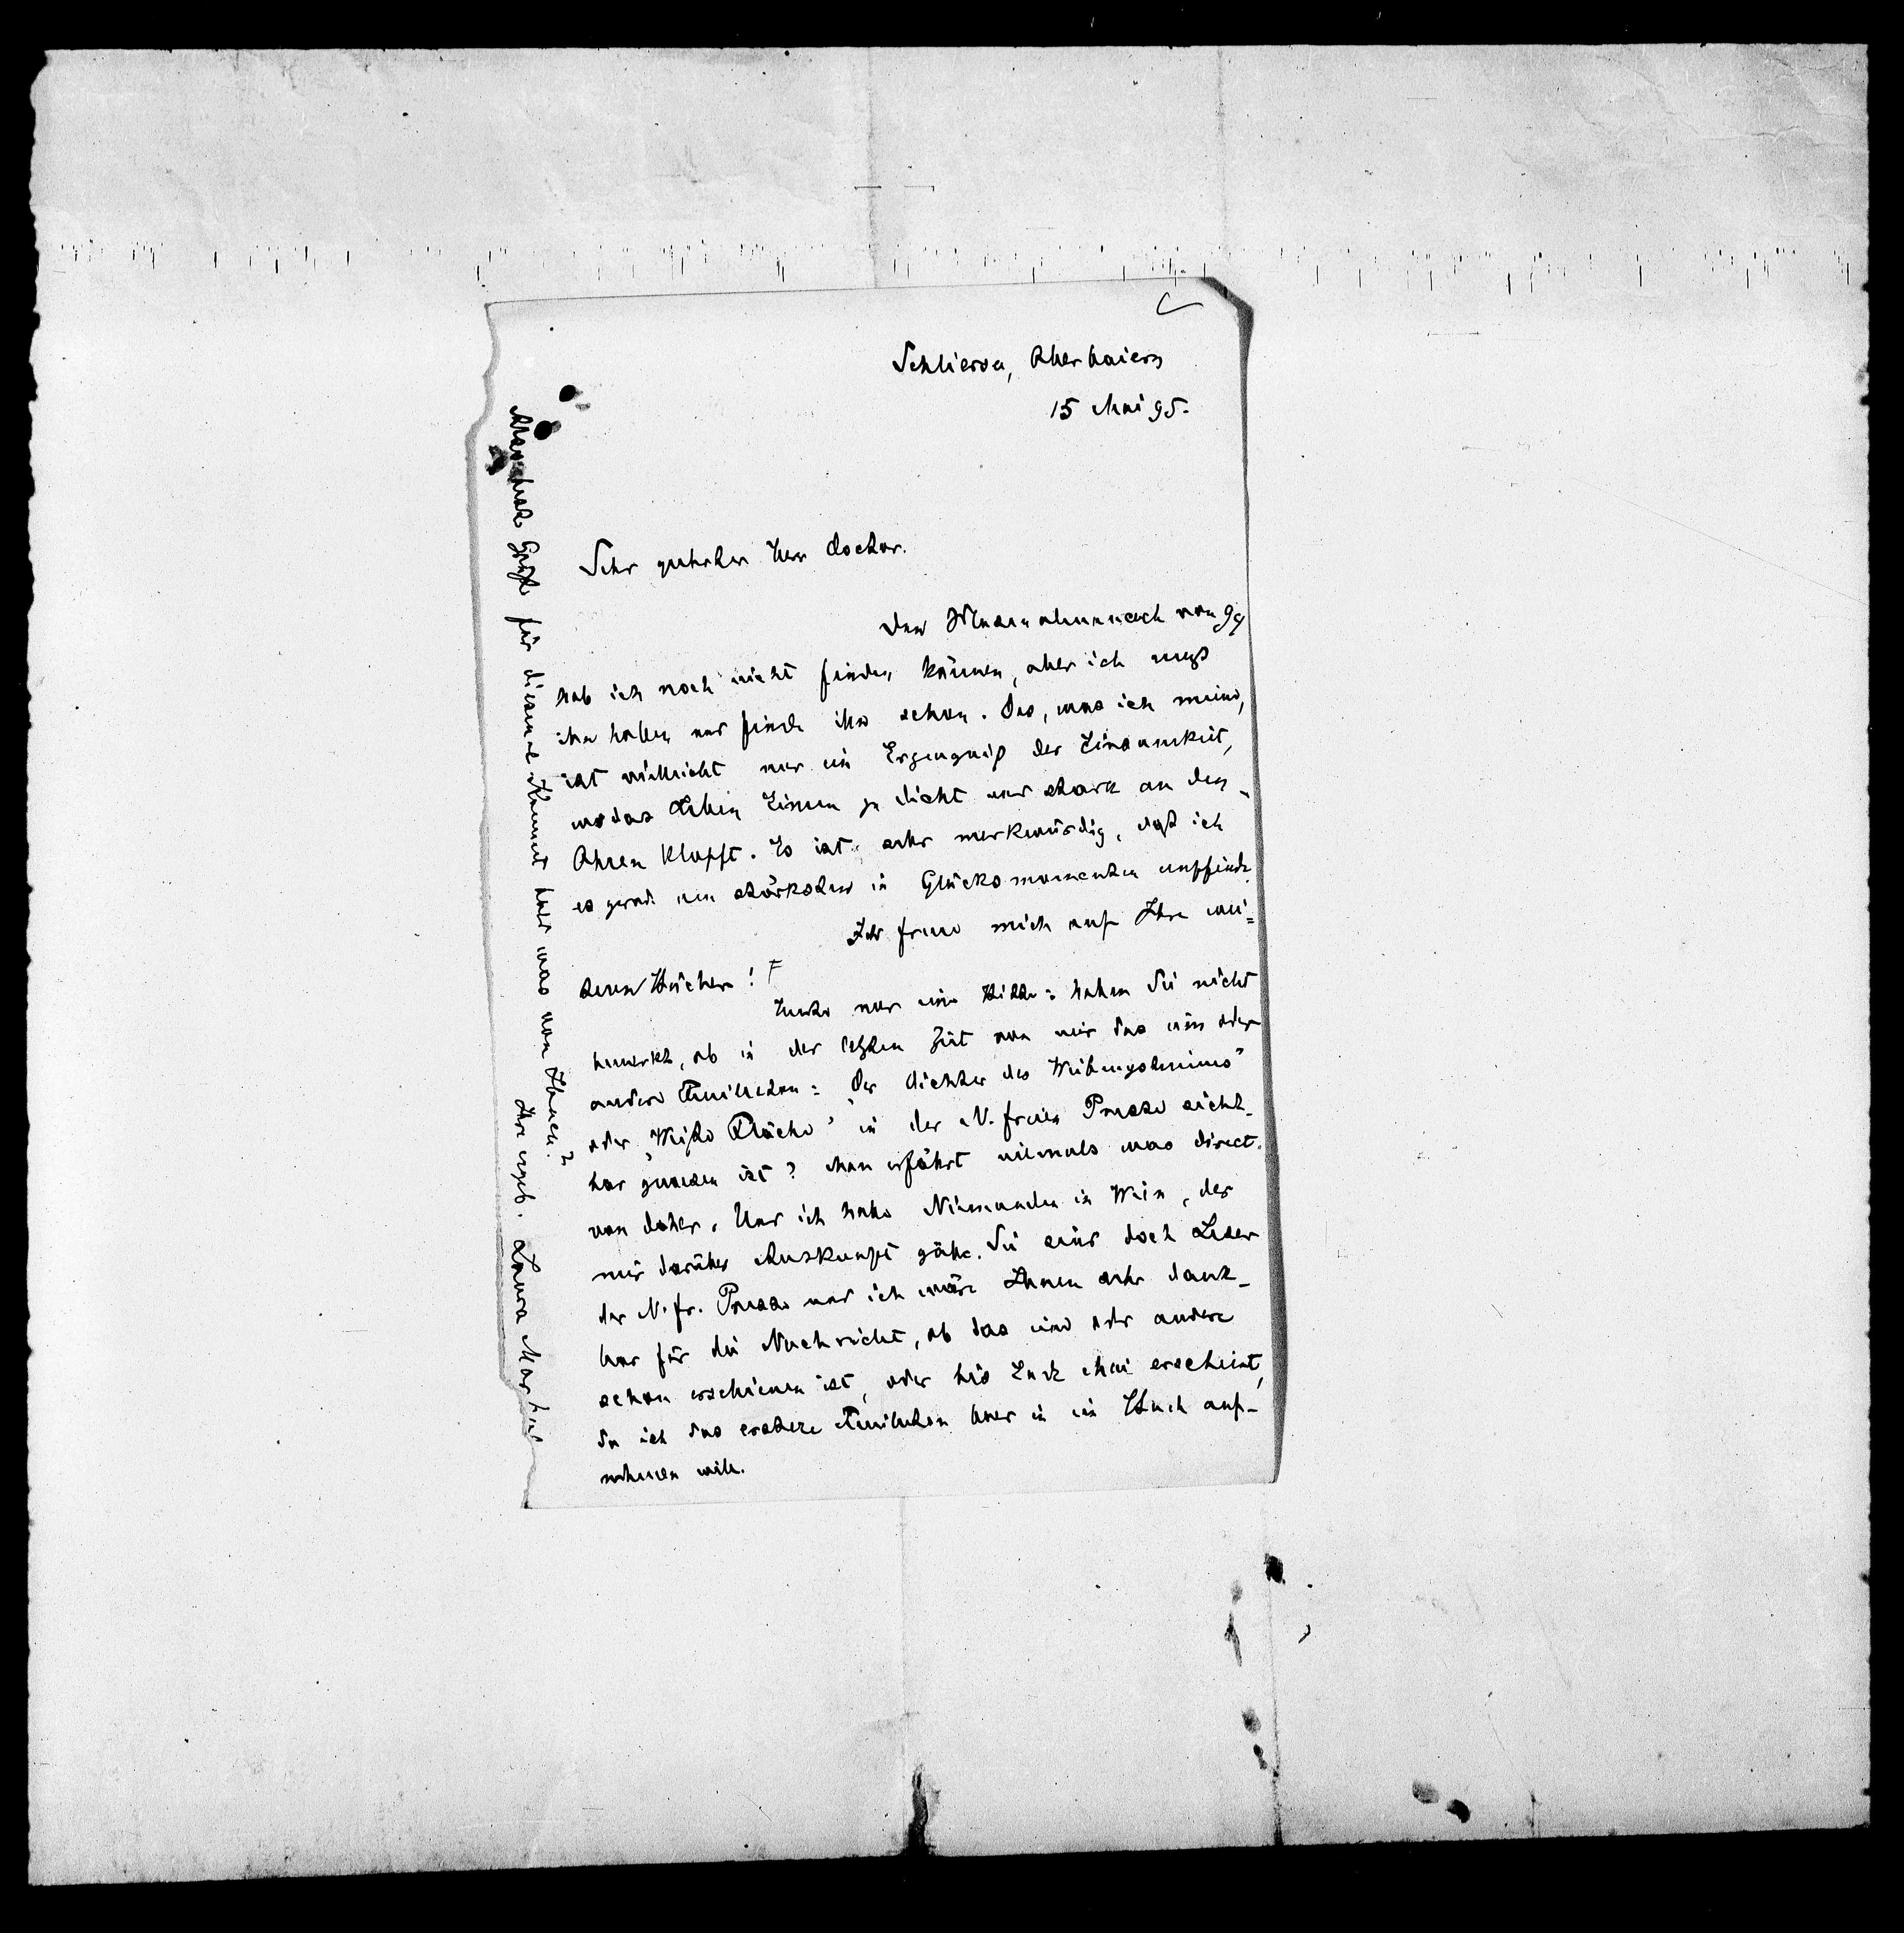 Schliersee, Oberbaiern
15 Mai 95.
Sehr geehrter Herr Doctor.
Den Musenalmanach von 94
hab ich noch nicht finden können, aber ich muß
ihn haben und finde ihn schon. Das, was ich meine,
ist vielleicht nur ein Erzeugniß der Einsamkeit,
wo das Leben Einem zu dicht und stark an den
Ohren klopft. Es ist sehr merkwürdig, daß ich
es gerade am stärksten in Glücksmomenten empfinde.
Ich freue mich auf Ihre wei=
teren Bücher!
Heute nur eine Bitte: haben Sie nicht
bemerkt, ob in der letzten Zeit von mir das eine oder
andere Feuilleton: "Der Dichter des Weibmysteriums"
oder "Weiße Fläche" in der N. freien Presse sicht-
bar gewesen ist? Man erfährt niemals was direct
von daher. Und ich habe Niemanden in Wien, der
mir darüber Auskunft gäbe. Sie sind doch Leser
der N. fr. Presse und ich wäre Ihnen sehr dank-
bar für die Nachricht, ob das eine oder andere
schon erschienen ist, oder bis Ende Mai erscheint,
da ich das erstere Feuilleton hier in ein Buch auf-
nehmen will.
Grüße für diesmal. Kommt bald was von Ihnen?
Ihre ergeb. Laura Marholm